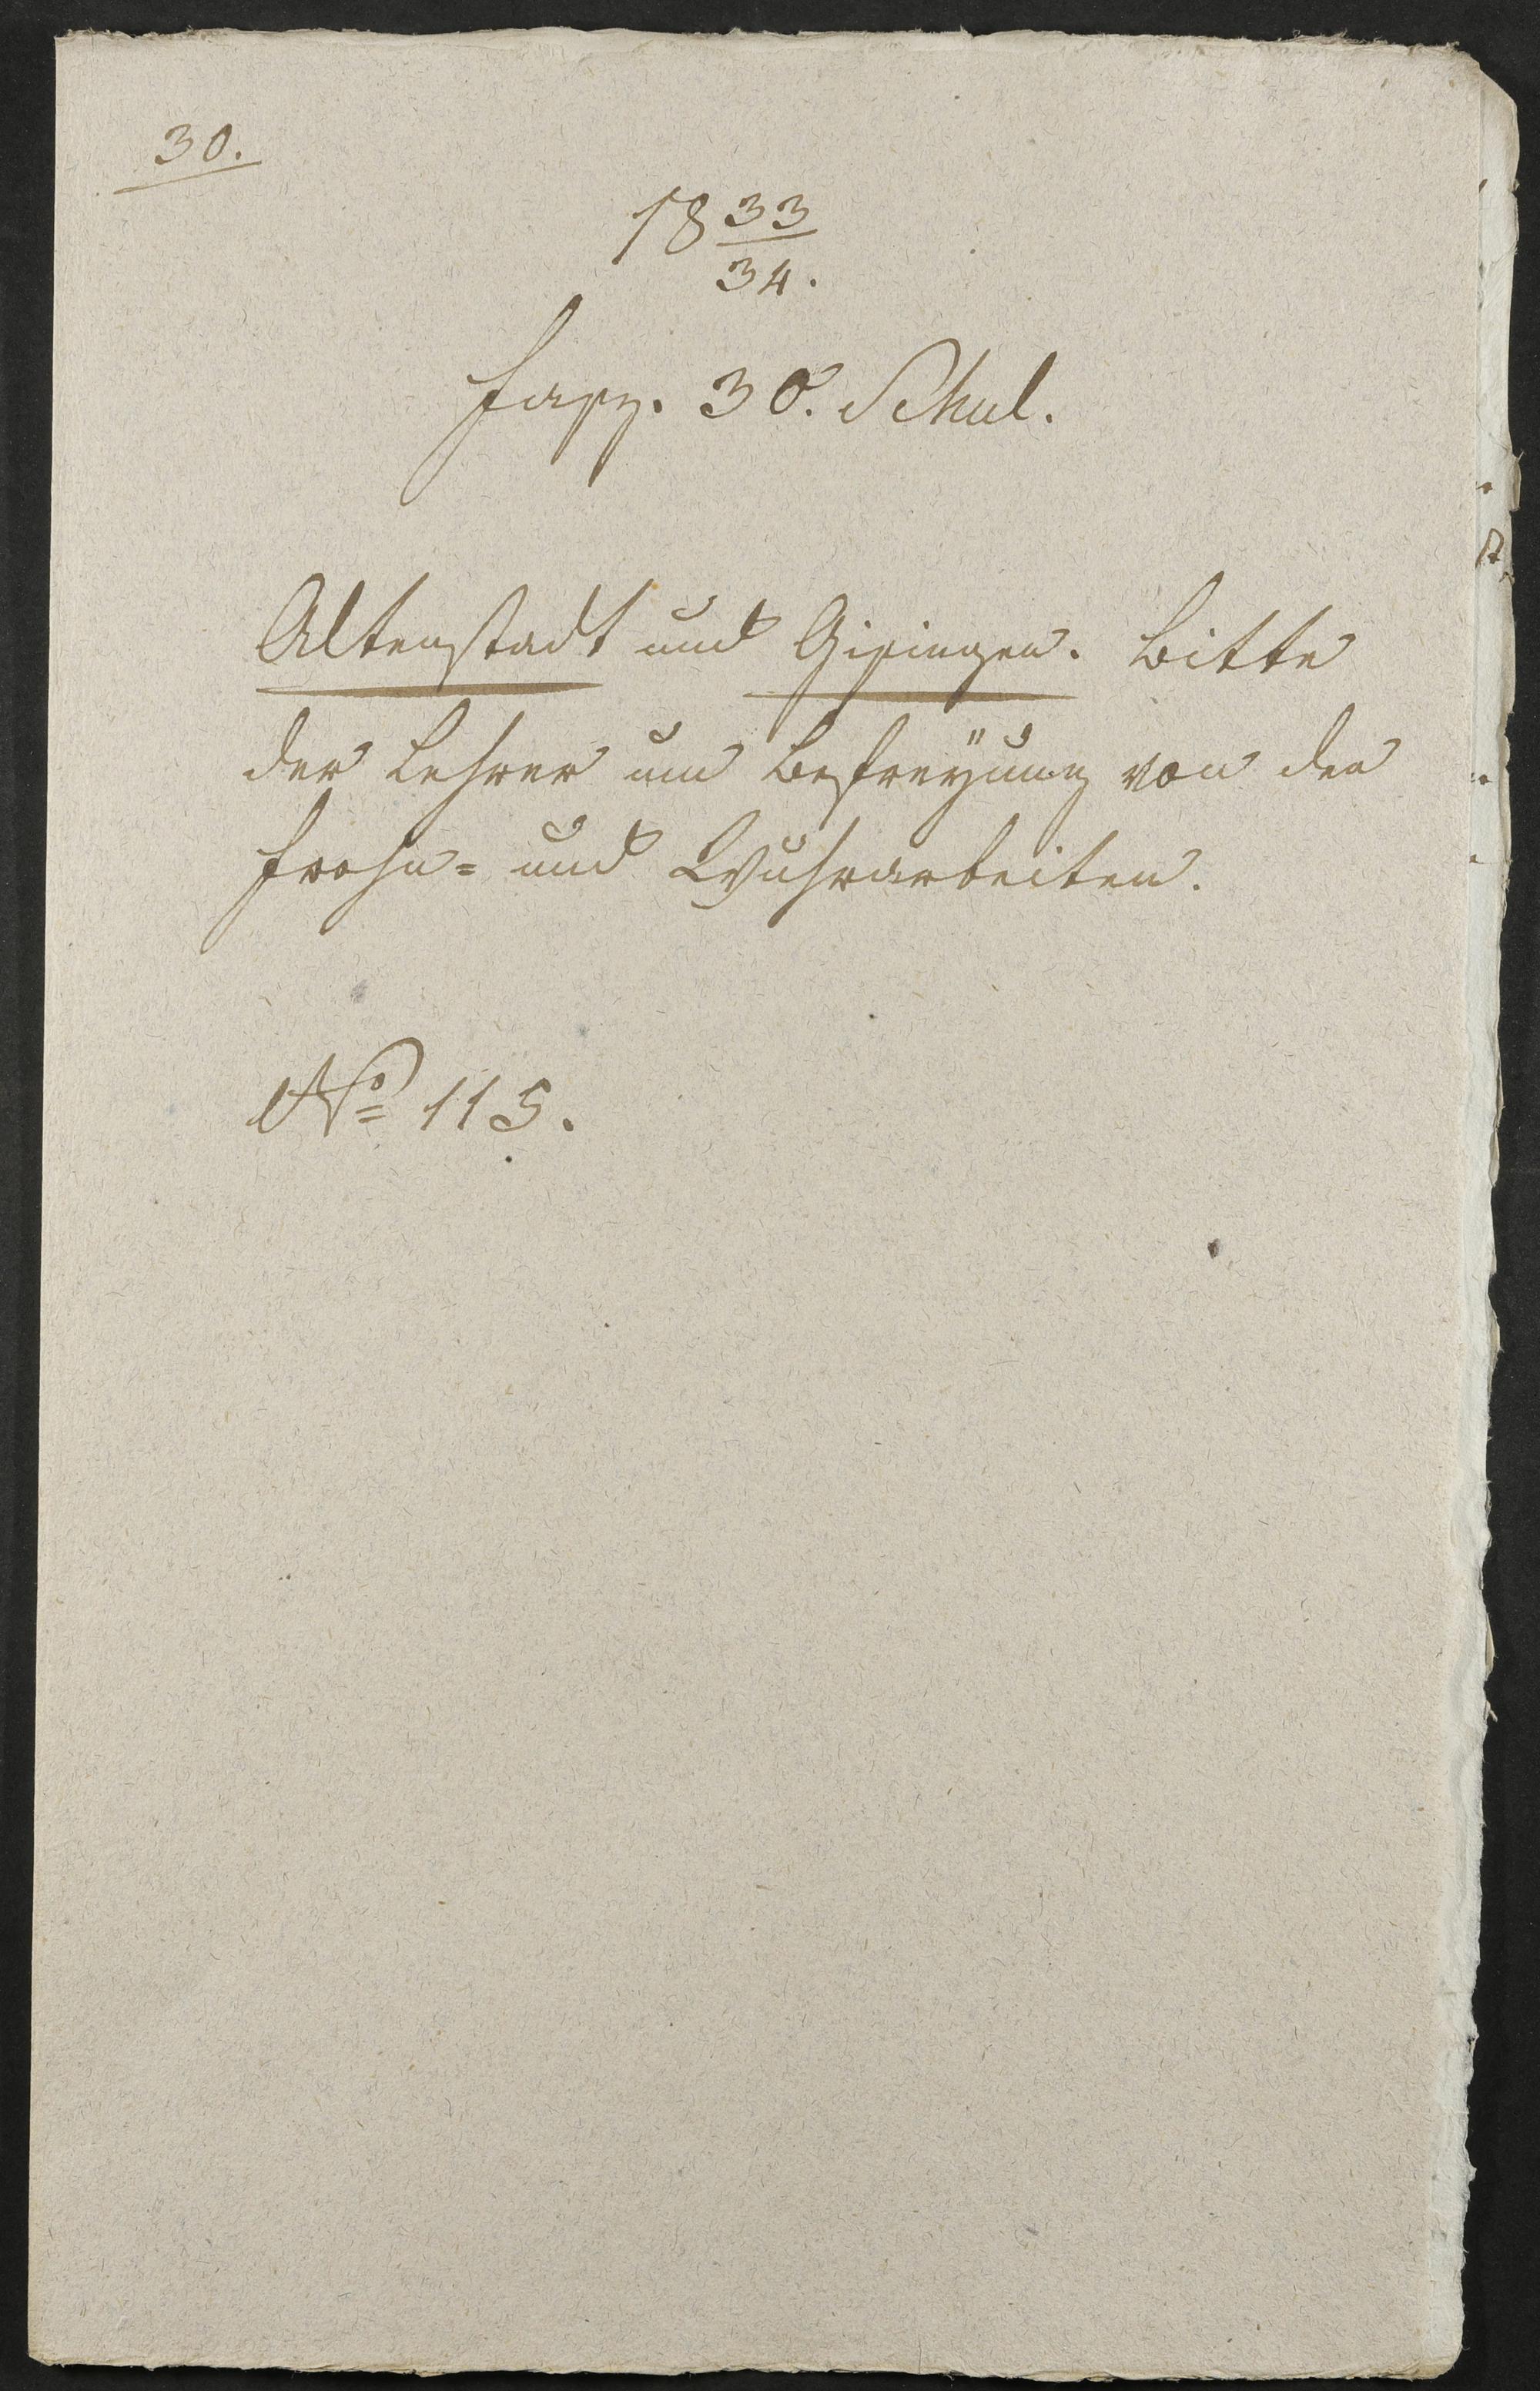 30.
18 33/34.
Fasz. 30. Schul.
Altenstadt und Gisingen. Bitte
der Lehrer um Befreÿung von den
Frohn= und Wuhrarbeiten.
No 115.